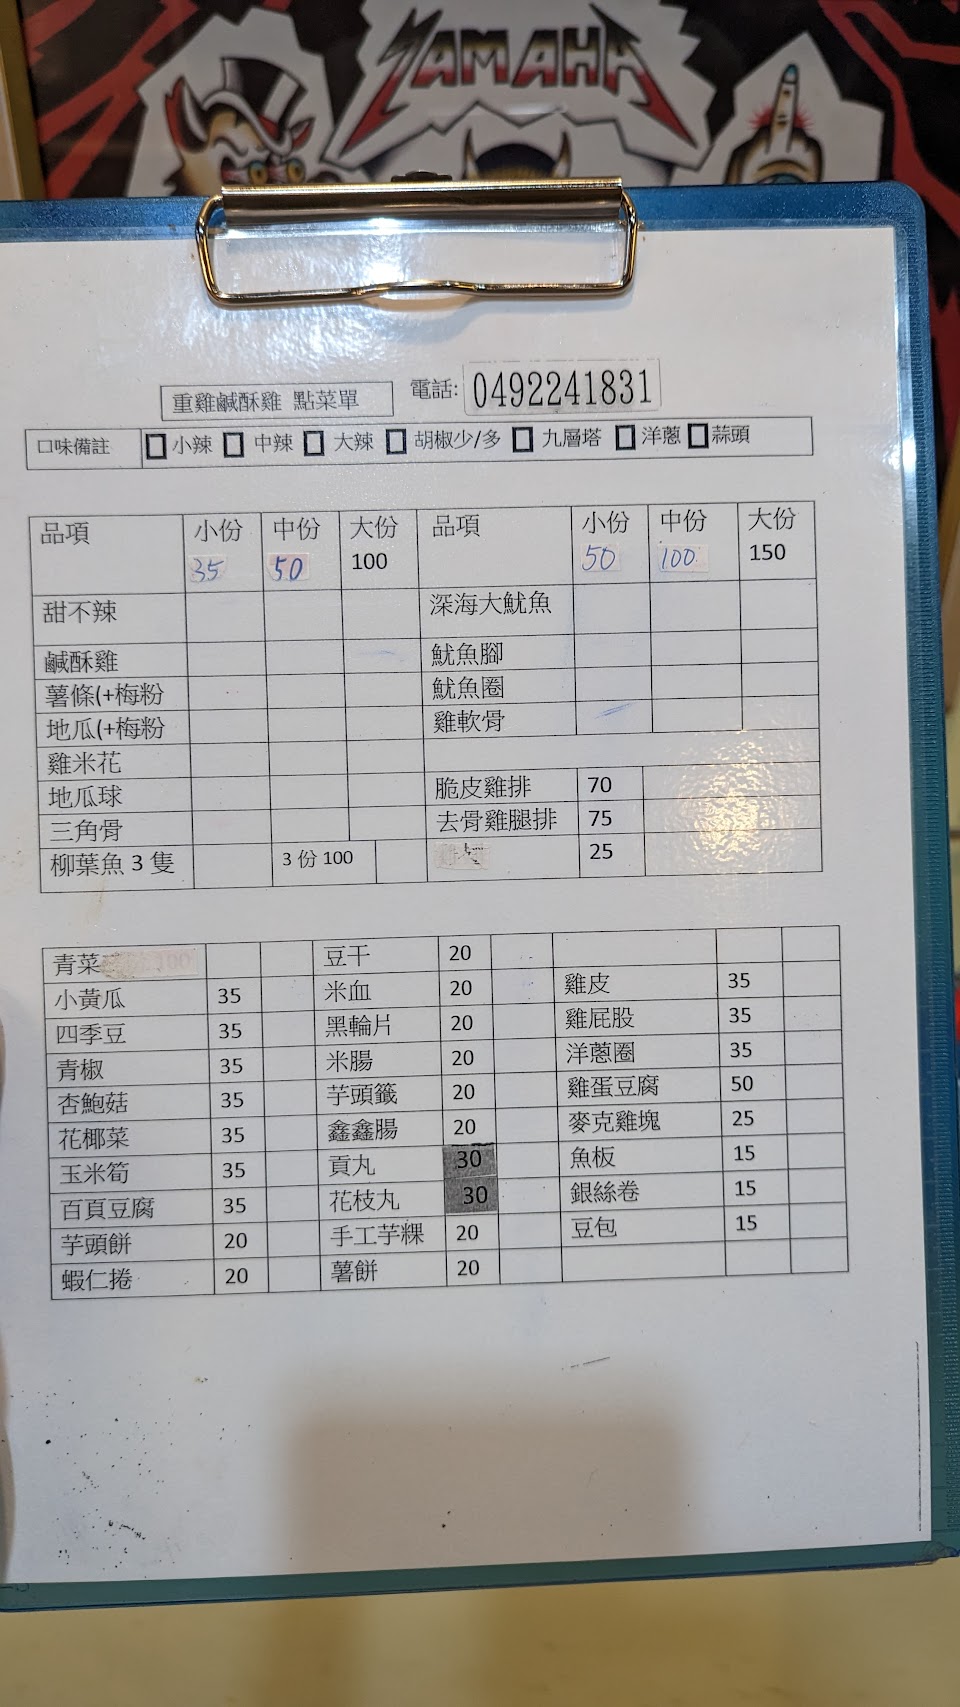 YAMAHA
重雞鹹酥雞 點菜單 電話: 0492241831
口味備註 小辣 中辣 大辣 胡椒少/多 九層塔 洋蔥 蒜頭
品項 小份 中份 大份 品項 小份 中份 大份
35 50 100 50 100 150
甜不辣 深海大魷魚
鹹酥雞 魷魚腳
薯條(+梅粉 魷魚圈
地瓜(+梅粉 雞軟骨
雞米花
地瓜球 脆皮雞排 70
三角骨 去骨雞腿排 75
柳葉魚 3 隻 3 份 100 25
青菜 100 豆干 20
小黃瓜 35 米血 20 雞皮 35
四季豆 35 黑輪片 20 雞屁股 35
青椒 35 米腸 20 洋蔥圈 35
杏鮑菇 35 芋頭籤 20 雞蛋豆腐 50
花椰菜 35 鑫鑫腸 20 麥克雞塊 25
玉米筍 35 貢丸 30 魚板 15
百頁豆腐 35 花枝丸 30 銀絲卷 15
芋頭餅 20 手工芋粿 20 豆包 15
蝦仁捲 20 薯餅 20